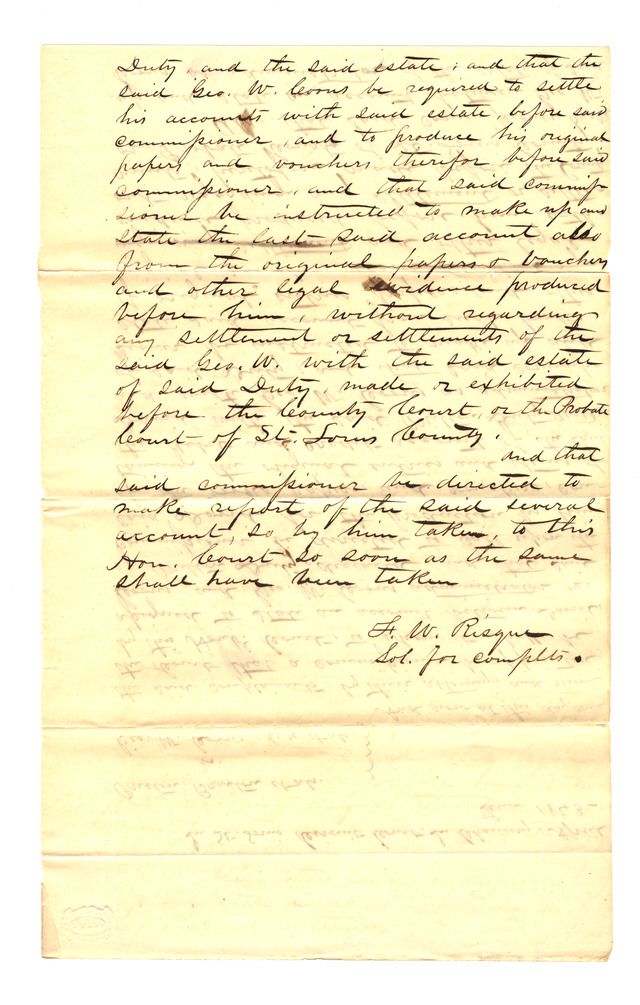 Duty, and the said estate; and that the
said Geo. W. Coons be required to settle
his accounts with said estate, before said
commissioner, and to produce his original
papers and vouchers therefor before said
commissioner, and that said commis-
sioner be instructed to make up and
state the last said account also
from the original papers & vouchers
and other legal evidence produced
before him, without regarding
any settlement or settlements of the
said Geo. W. with the said estate
of said Duty, made or exhibited
before the County Court, or the Probate
Court of St. Louis County.
and that
said commissioner be directed to
make report of the said several
account, so by him taken, to this
Hon. Court so soon as the same
shall have been taken
F. W. Risque
Sol. for complts.